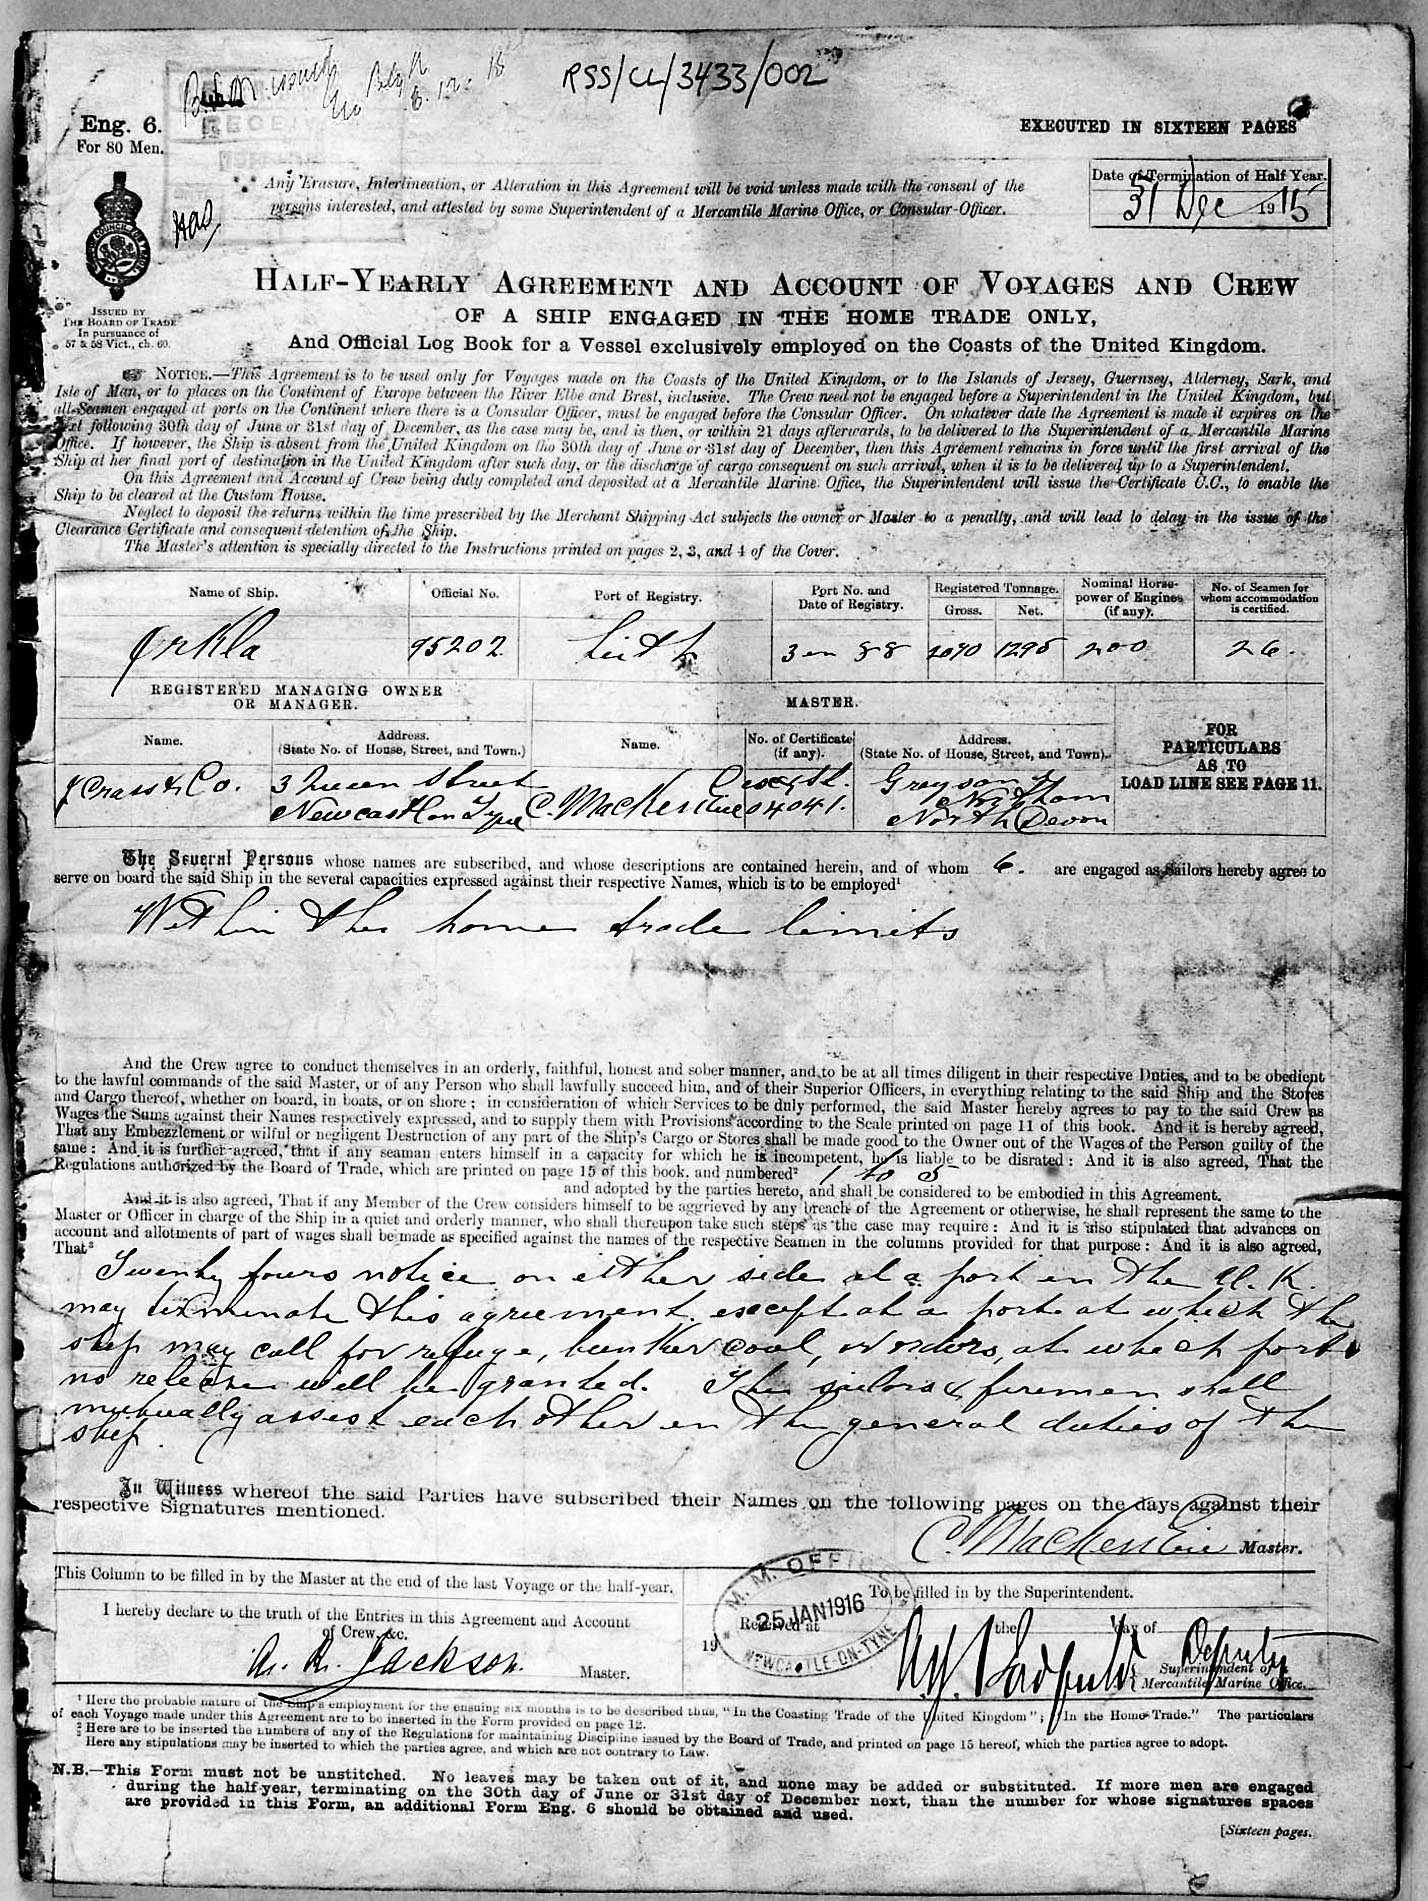 RSS/CL/3433/002
Eng. 6.
For 80 Men.
EXECUTED IN SIXTEEN PAGES
Any Erasure, Interlineation, or Alteration in this Agreement will be void unless made with the consent of the
persons interested, and attested by some Superintendent of a Mercantile Marine Office, or Consular-Officer.
Date of Termination of Half Year.
31 Dec 1915
ISSUED BY
THE BOARD OF TRADE
In pursuance of
57 & 58 Vict., ch. 60.
HALF-YEARLY AGREEMENT AND ACCOUNT OF VOYAGES AND CREW
OF A SHIP ENGAGED IN THE HOME TRADE ONLY,
And Official Log Book for a Vessel exclusively employed on the Coasts of the United Kingdom.
NOTICE.—This Agreement is to be used only for Voyages made on the Coasts of the United Kingdom, or to the Islands of Jersey, Guernsey, Alderney, Sark, and
Isle of Man, or to places on the Continent of Europe between the River Elbe and Brest, inclusive. The Crew need not be engaged before a Superintendent in the United Kingdom, but
all Seamen engaged at ports on the Continent where there is a Consular Officer, must be engaged before the Consular Officer. On whatever date the Agreement is made it expires on the
next following 30th day of June or 31st day of December, as the case may be, and is then, or within 21 days afterwards, to be delivered to the Superintendent of a Mercantile Marine
Office. If however, the Ship is absent from the United Kingdom on the 30th day of June or 31st day of December, then this Agreement remains in force until the first arrival of the
Ship at her final port of destination in the United Kingdom after such day, or the discharge of cargo consequent on such arrival, when it is to be delivered up to a Superintendent.
On this Agreement and Account of Crew being duly completed and deposited at a Mercantile Marine Office, the Superintendent will issue the Certificate C.C., to enable the
Ship to be cleared at the Custom House.
Neglect to deposit the returns within the time prescribed by the Merchant Shipping Act subjects the owner or Master to a penalty, and will lead to delay in the issue of the
Clearance Certificate and consequent detention of the Ship.
The Master's attention is specially directed to the Instructions printed on pages 2, 3, and 4 of the Cover.
Name of Ship. Official No. Port of Registry. Port No. and Date of Registry. Registered Tonnage. Gross. Net. Nominal Horse-power of Engines (if any). No. of Seamen for whom accommodation is certified.
Orkla 95202 Leith 3 in 88 2090 1295 200 26.
REGISTERED MANAGING OWNER
OR MANAGER.
MASTER.
FOR
PARTICULARS
AS TO
LOAD LINE SEE PAGE 11.
Name. Address. (State No. of House, Street, and Town.) Name. No. of Certificate (if any). Address. (State No. of House, Street, and Town).
J Crass & Co. 3 Queen Street
Newcastle on Tyne C. MacKenzie 04041. Northam
North Devon
The Several Persons whose names are subscribed, and whose descriptions are contained herein, and of whom 6. are engaged as Sailors hereby agree to
serve on board the said Ship in the several capacities expressed against their respective Names, which is to be employed¹
Within the home trade limits
And the Crew agree to conduct themselves in an orderly, faithful, honest and sober manner, and to be at all times diligent in their respective Duties, and to be obedient
to the lawful commands of the said Master, or of any Person who shall lawfully succeed him, and of their Superior Officers, in everything relating to the said Ship and the Stores
and Cargo thereof, whether on board, in boats, or on shore; in consideration of which Services to be duly performed, the said Master hereby agrees to pay to the said Crew as
Wages the Sums against their Names respectively expressed, and to supply them with Provisions according to the Scale printed on page 11 of this book. And it is hereby agreed,
That any Embezzlement or wilful or negligent Destruction of any part of the Ship's Cargo or Stores shall be made good to the Owner out of the Wages of the Person guilty of the
same: And it is further agreed, that if any seaman enters himself in a capacity for which he is incompetent, he is liable to be disrated: And it is also agreed, That the
Regulations authorized by the Board of Trade, which are printed on page 15 of this book, and numbered² 1 to 5
and adopted by the parties hereto, and shall be considered to be embodied in this Agreement.
And it is also agreed, That if any Member of the Crew considers himself to be aggrieved by any breach of the Agreement or otherwise, he shall represent the same to the
Master or Officer in charge of the Ship in a quiet and orderly manner, who shall thereupon take such steps as the case may require: And it is also stipulated that advances on
account and allotments of part of wages shall be made as specified against the names of the respective Seamen in the columns provided for that purpose: And it is also agreed,
That³
Twenty fours notice on either side at a port in the U.K.
may terminate this agreement except at a port at which the
ship may call for refuge, bunker coal, or orders, at which port
no release will be granted. The sailors & firemen shall
mutually assist each other in the general duties of the
ship.
In Witness whereof the said Parties have subscribed their Names on the following pages on the days against their
respective Signatures mentioned.
C. MacKenzie Master.
This Column to be filled in by the Master at the end of the last Voyage or the half-year.
I hereby declare to the truth of the Entries in this Agreement and Account
of Crew, &c.
Jackson. Master.
M. M. OFFICE
25 JAN 1916
NEWCASTLE-ON-TYNE
To be filled in by the Superintendent.
Received at the day of
19
Deputy
Superintendent of
Mercantile Marine Office.
¹ Here the probable nature of the Ship's employment for the ensuing six months is to be described thus, "In the Coasting Trade of the United Kingdom"; "In the Home Trade." The particulars
of each Voyage made under this Agreement are to be inserted in the Form provided on page 12.
² Here are to be inserted the numbers of any of the Regulations for maintaining Discipline issued by the Board of Trade, and printed on page 15 hereof, which the parties agree to adopt.
³ Here any stipulations may be inserted to which the parties agree, and which are not contrary to Law.
N.B.—This Form must not be unstitched. No leaves may be taken out of it, and none may be added or substituted. If more men are engaged
during the half-year, terminating on the 30th day of June or 31st day of December next, than the number for whose signatures spaces
are provided in this Form, an additional Form Eng. 6 should be obtained and used.
[Sixteen pages.